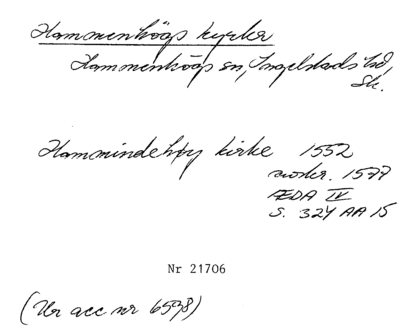 Hammenhögs kyrka
Hammenhögs sn, Ingelstads hd,
Sk.
Hammindehøy kirke 1552
1577
ÆDA IV
S. 324 AA 15
Nr 21706
(Ur acc nr 6598)